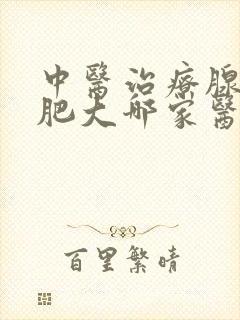 中醫治療腺
肥大哪家醫
百里繁晴